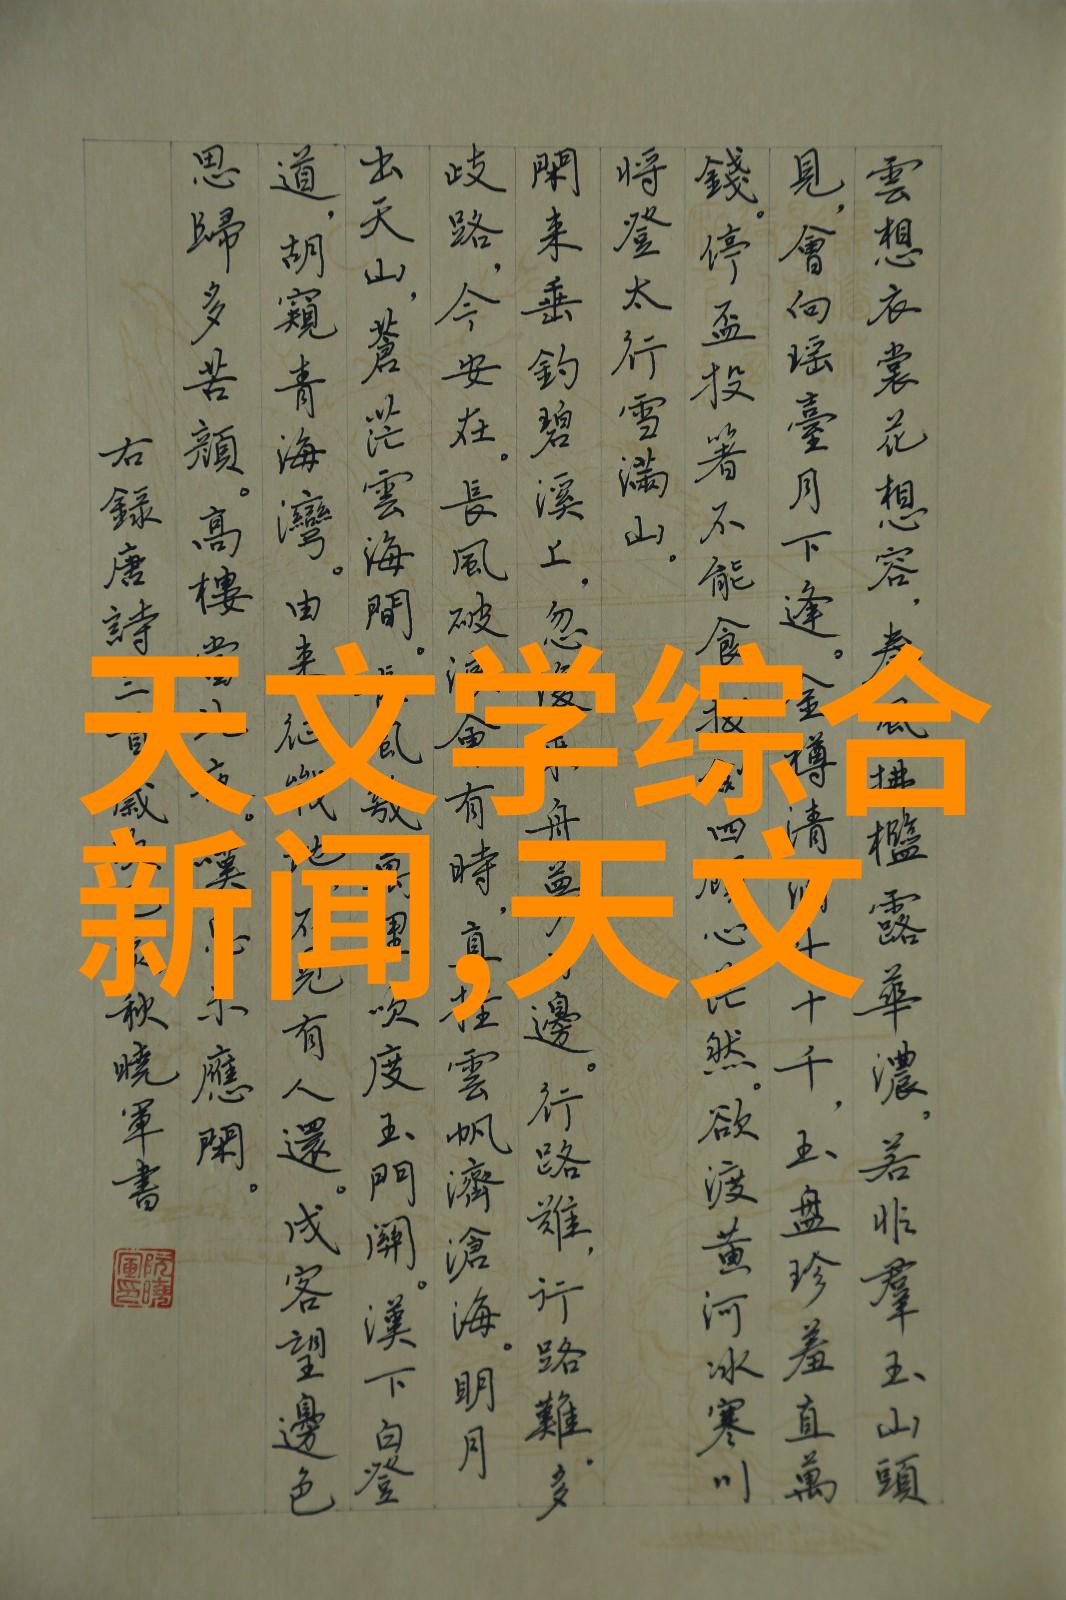 雲想衣裳花想容，春風拂檻露華濃。若非羣玉山頭
見，會向瑶臺月下逢。金樽清酒斗十千，玉盤珍羞直萬
錢。停盃投箸不能食，拔劍四顧心茫然。欲渡黄河冰寒川
将登太行雪滿山。
閑来垂釣碧溪上，忽復乘舟夢日邊。行路難，行路難。多
歧路，今安在。長風破浪會有時，直挂雲帆濟滄海。明月
出天山，蒼茫雲海間。長風幾萬里吹度玉門關。漢下白登
道，胡窺青海灣。由来征戰地不見有人還。戍客望邊色
思歸多苦顔。高樓當此夜。嘆息未應閑。
右録唐詩三首歲次 秋曉軍書
阮曉軍印
天文学综合
新闻,天文